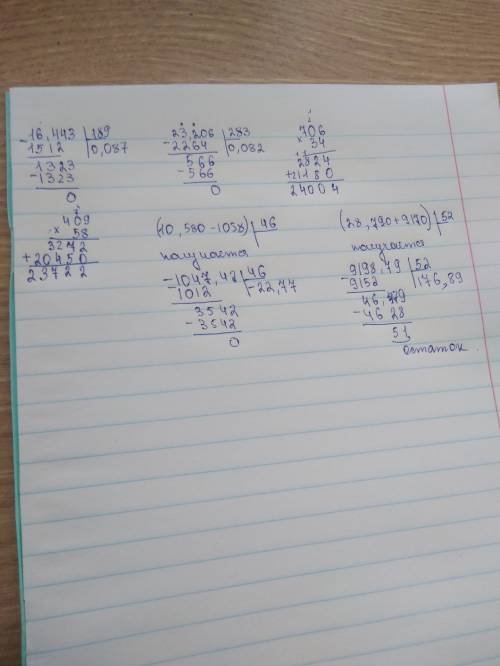 -16,443 |189
1512 0,087
1323
-1323
0
23,206 |283
-2264 0,082
566
-566
0
706
×34
2824
+21180
24004
409
×58
3272
+20450
23722
(10,580-1058) |46
получается
-1047,42|46
1012 -22,77
3542
-3542
0
(28,790+9170) |52
получается
-9198,79 |52
9152 176,89
46,79
-4628
51
остаток